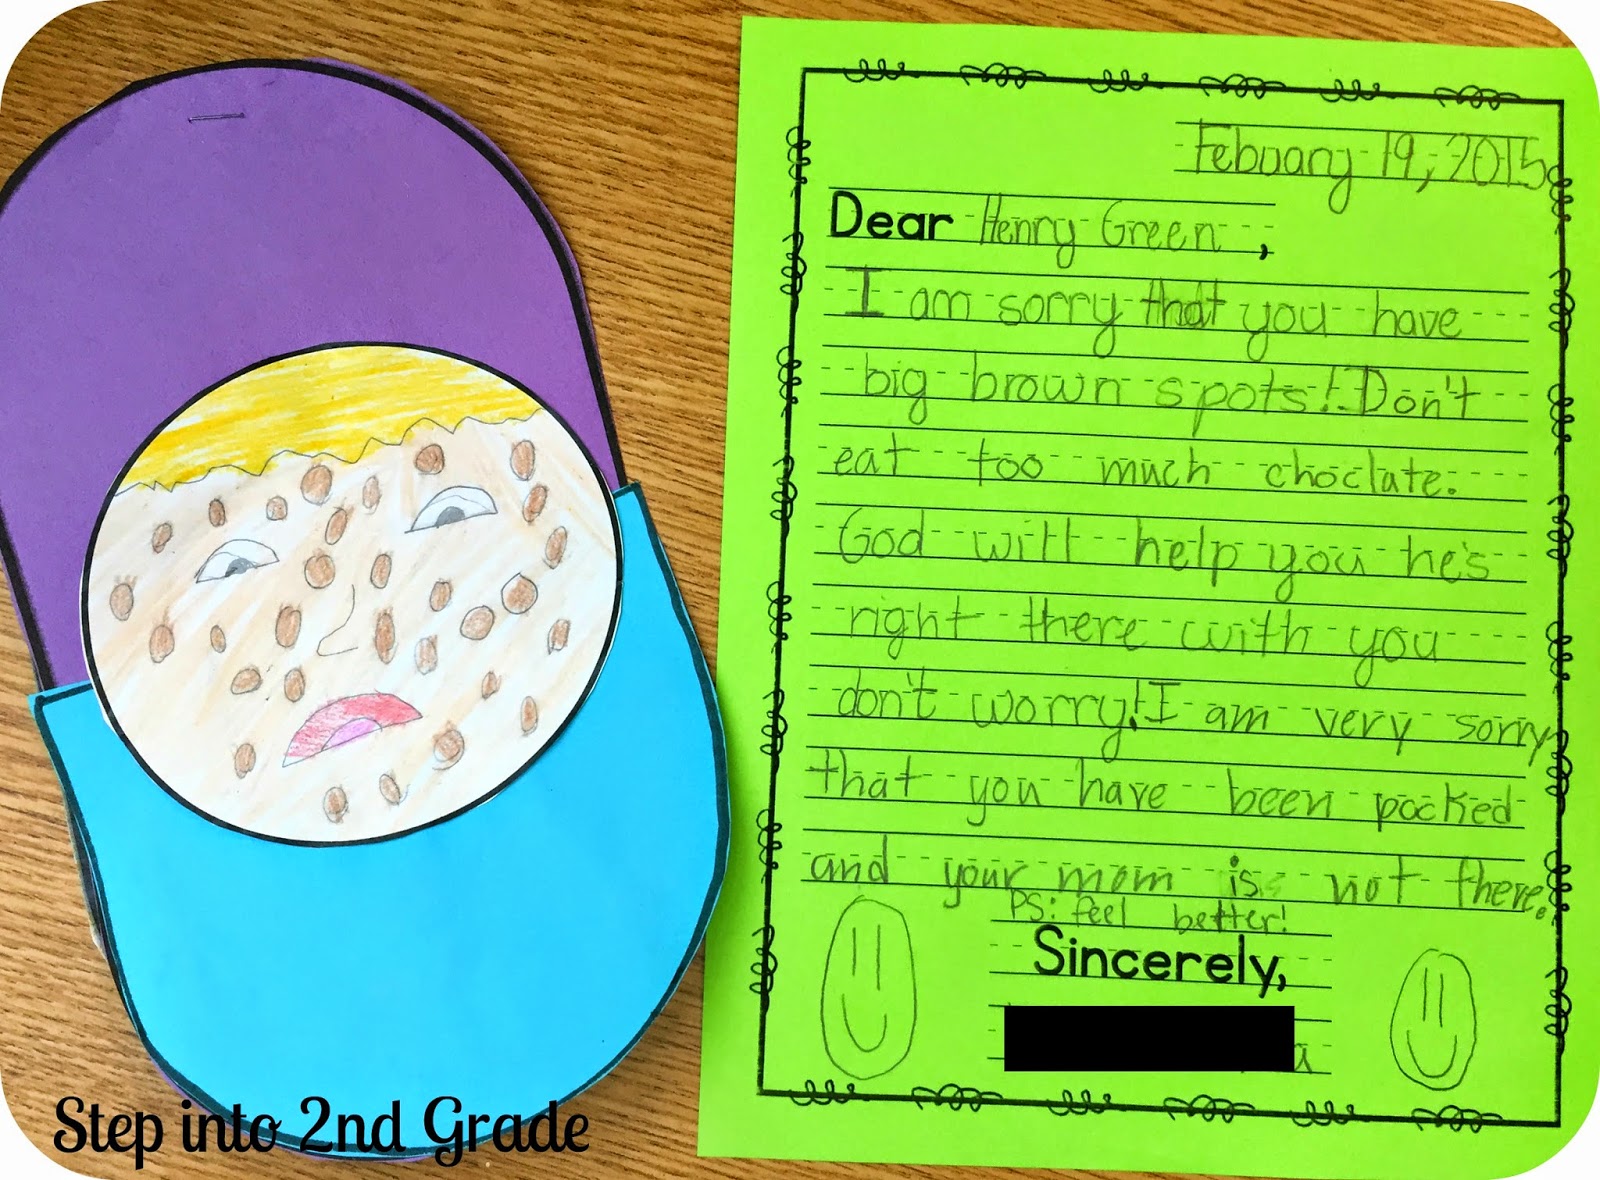 Febuary 19, 2015
Dear Henry Green,
I am sorry that you have
big brown spots! Don't
eat too much choclate.
God will help you he's
right there with you
don't worry! I am very sorry
that you have been pocked
and your mom is not there.
PS: feel better!
Sincerely,
a
Step into 2nd Grade